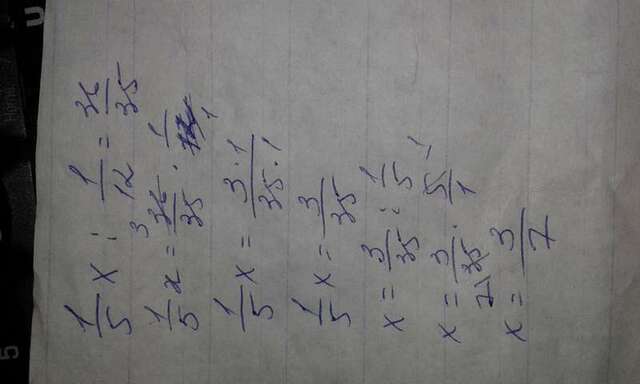 1/5 x : 1/12 = 36/35
1/5 x = 36/35 · 1/12
1/5 x = 3·1/35·1
1/5 x = 3/35
x = 3/35 : 1/5
x = 3/35 · 5/1
x = 3/7